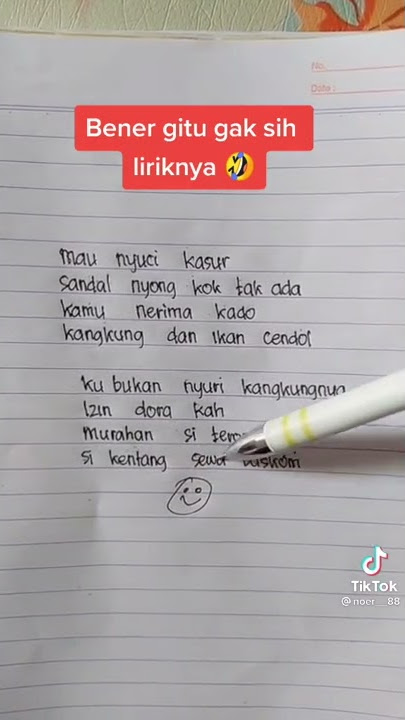 No.
Date :
Bener gitu gak sih
liriknya 🤣
mau nyuci kasur
sandal nyong kok tak ada
kamu nerima kado
kangkung dan ikan cendol
ku bukan nyuri kangkungnya
Izin dora kah
murahan si
si kentang sewa
TikTok
@noer__88